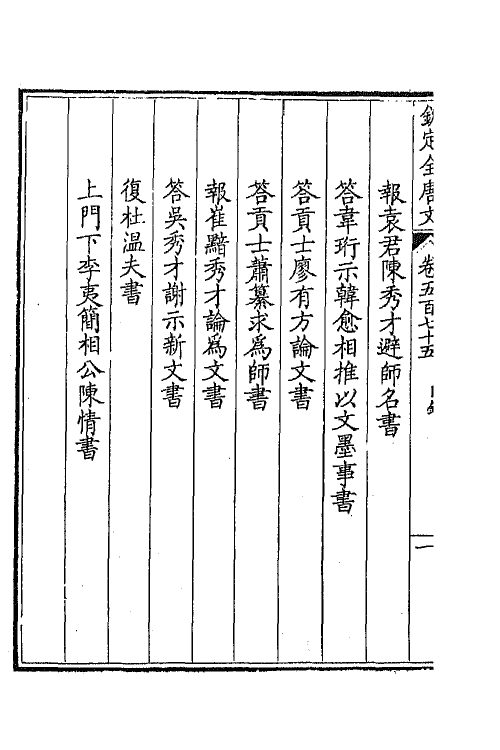 欽定全唐文 卷五百七十五 目錄 一
報袁君陳秀才避師名書
答韋珩示韓愈相推以文墨事書
答貢士廖有方論文書
答貢士蕭纂求為師書
報崔黯秀才論為文書
答吳秀才謝示新文書
復杜温夫書
上門下李夷簡相公陳情書